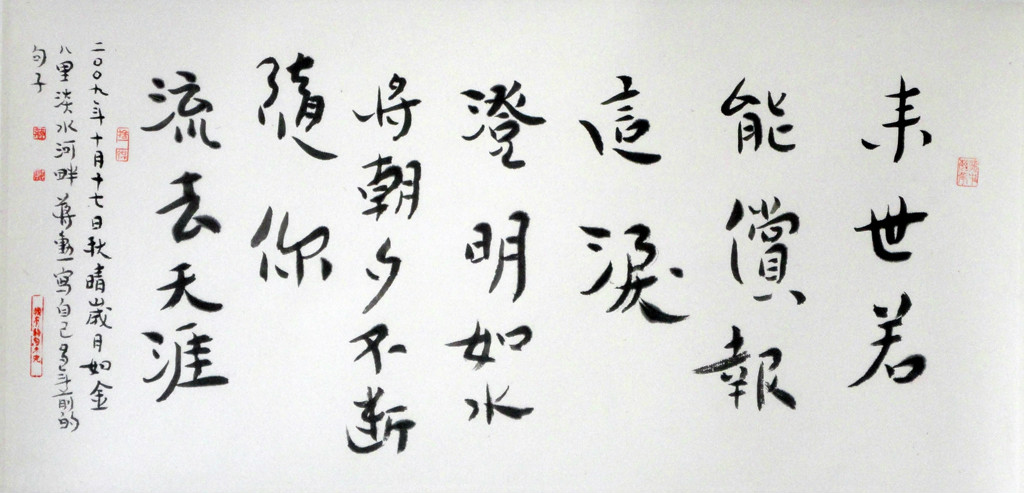 来世若
能償報
這淚
澄明如水
將朝夕不斷
隨你
流去天涯
二〇〇九年十月十七日秋晴歲月如金
八里淡水河畔 蔣勳寫自己多年前的
句子